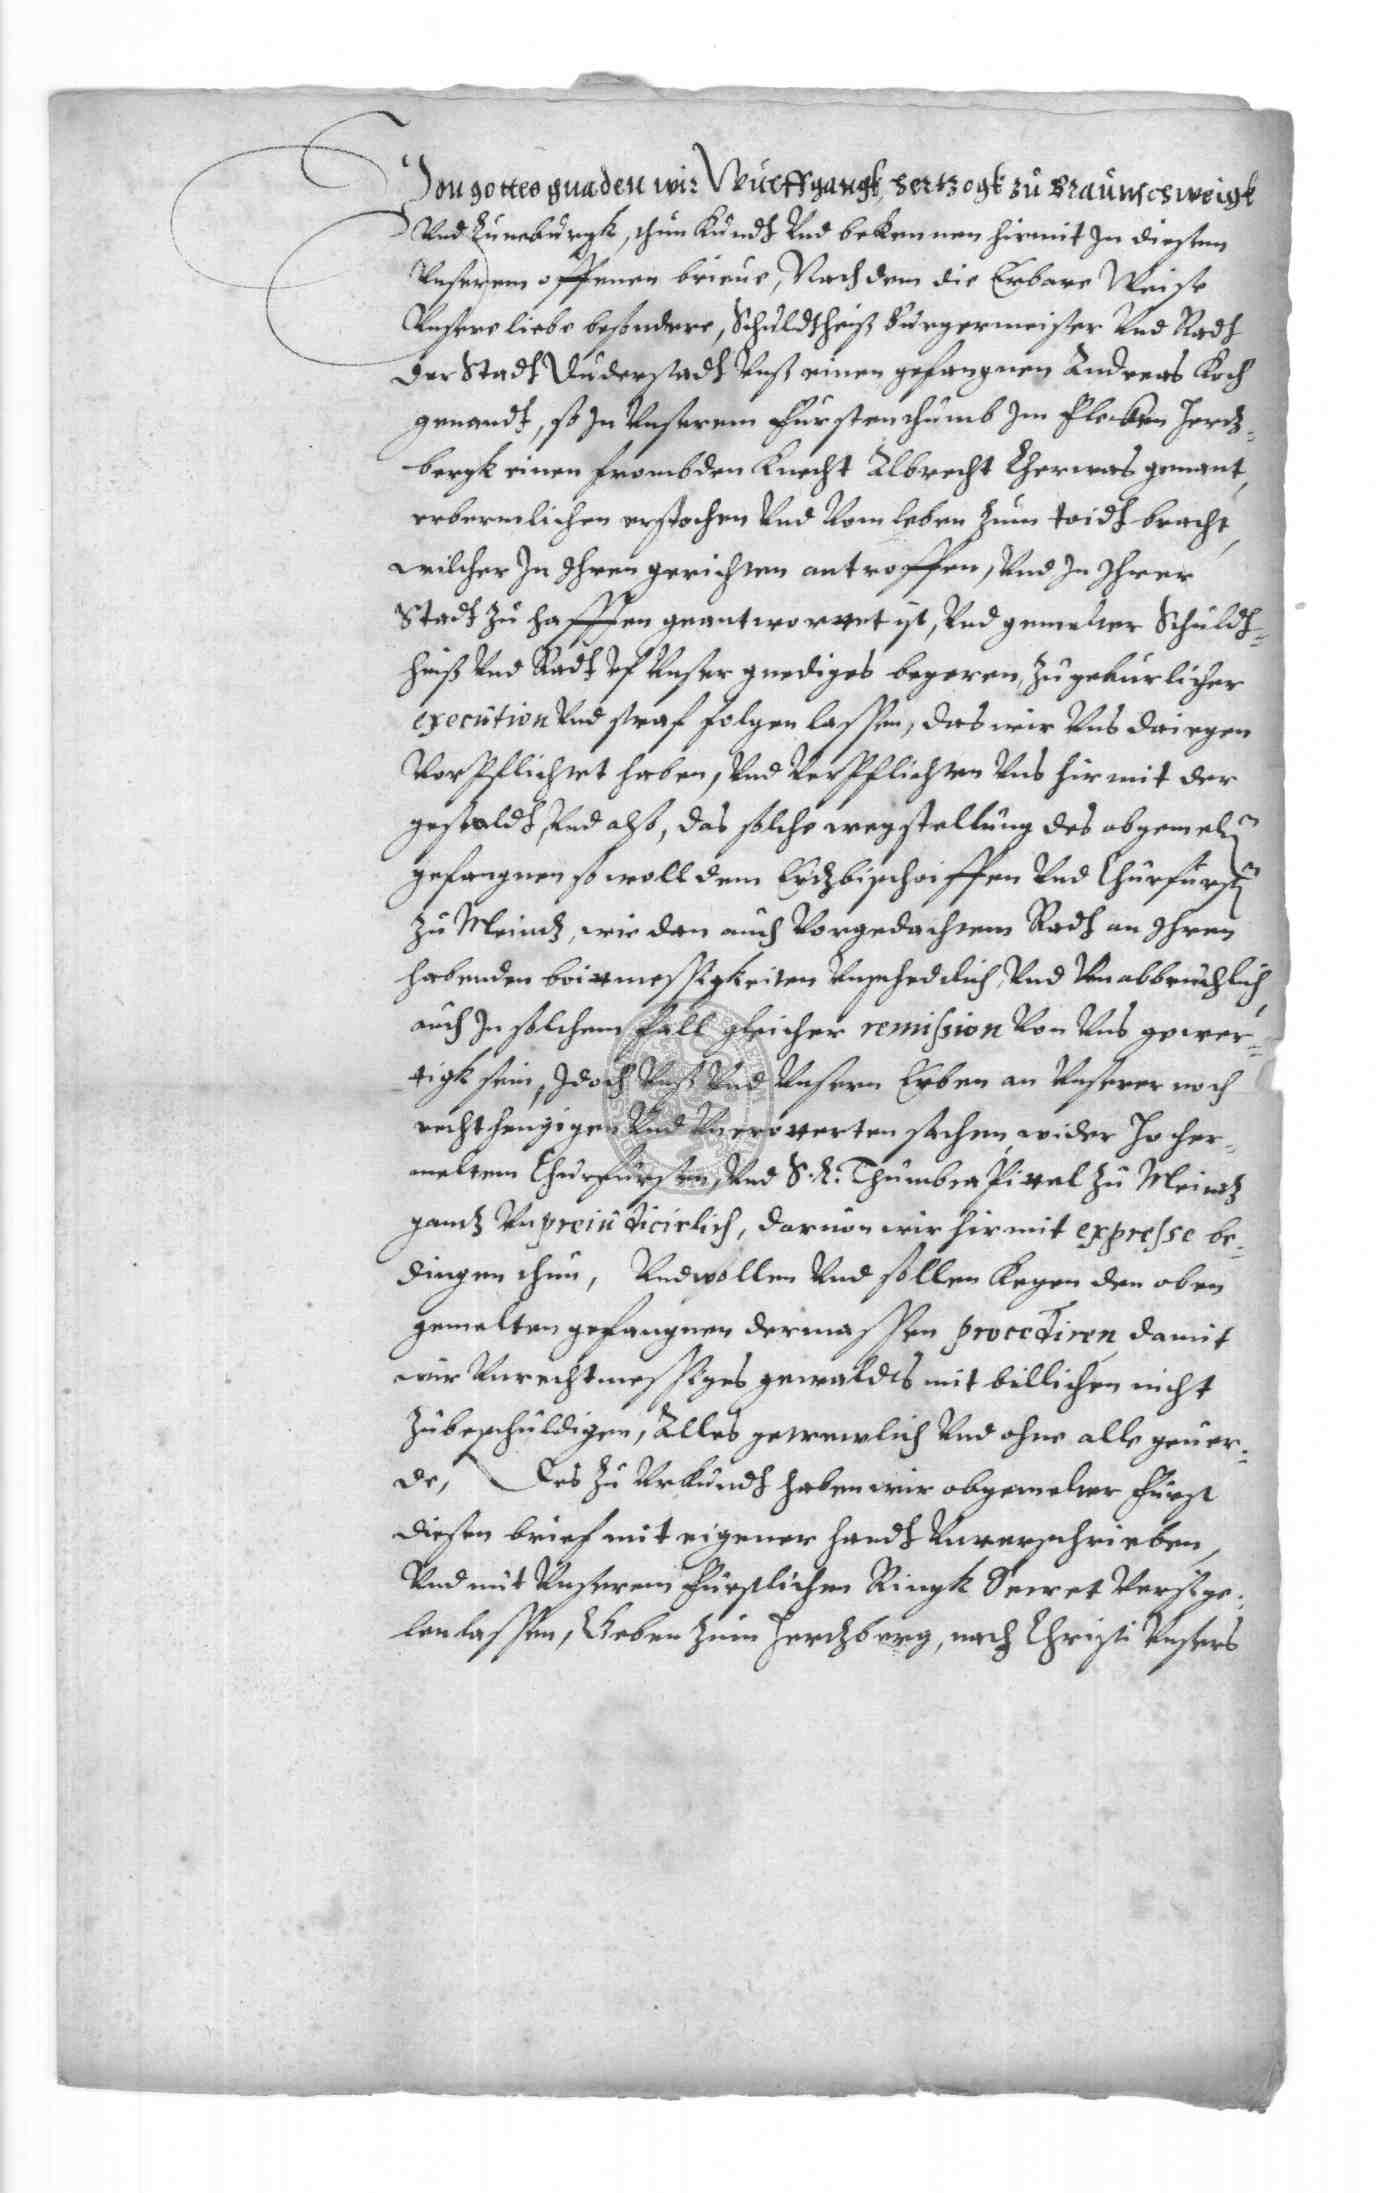 Von gottes gnaden wir Wulffgangk, Hertzogk zu Braunschweigk
Vnd Luneburgk, thun kundt Vnd bekennen hirmit In diesem
Vnserem offenen brieue, Nach dem die Erbare Weise
Vnsere liebe besondere, Schuldtheiß Burgermeister Vnd Radt
der Stadt Duderstadt Vnß einen gefangnen Andreas Koch
genandt, so In Vnserem Furstenthumb Im Flecken Hertz-
bergk einen frombden Knecht Albrecht genant,
erbermlichen erstochen Vnd Vom leben zum toidt bracht,
wilcher In Ihren gerichten antroffen, Vnd In Ihrer
Stadt zu hafften geantwortet ist, Vnd gemelter Schuldt-
heiß Vnd Radt Vf Vnser gnediges begeren, zu geburlicher
execution Vnd straf folgen lassen, das wir Vns dajegen
Vorpflichtet haben, Vnd Verpflichten Vns hirmit der
gestaldt, Vnd also, das solche wegstellung des obgemelt
gefangnen so woll dem Ertzbischoiffen Vnd Churfurst
zu Meintz, wie dan auch Vorgedachtem Radt an Ihren
habenden botmessigkeiten Vnschedlich, Vnd Vnabbruchlich,
auch In solchem fall gleicher remission Von Vns gewer-
tigk sein, Idoch Vnß Vnd Vnsern Erben an Vnserer noch
rechthengigen Vnd Vnerorterten sachen, wider Hocher-
meltem Churfursten, Vnd S. L. Thumbcapittel zu Meintz
gantz Vnpreiudicirlich, daruon wir hirmit expresse be-
dingen thun, Vnd wollen Vnd sollen kegen den oben
gemelten gefangnen dermassen procediren, damit
wir Vnrechtmessiges gewaldts mit billichen nicht
zubeschuldigen, Alles getrewlich Vnd ohne alle geuer-
de, Des zu Vrkundt haben wir obgemelter Furst
diesen brief mit eigener handt Vnterschrieben,
Vnd mit Vnserem Furstlichen Ringk Secret Versige-
len lassen, Geben zum Hertzberg, nach Christi Vnsers